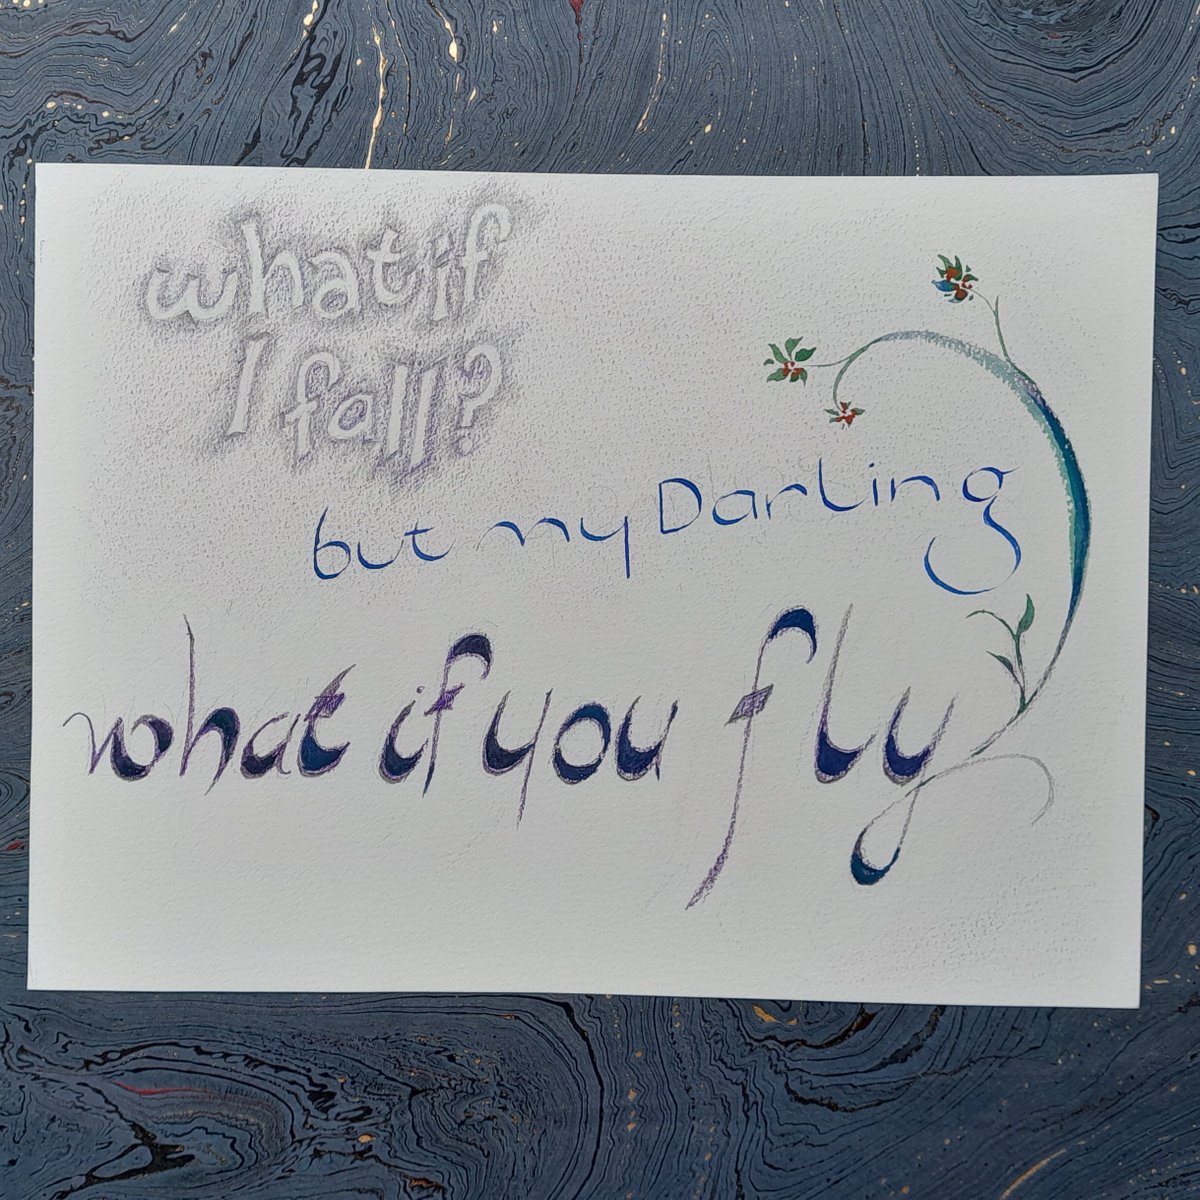 what if
I fall?
but my Darling
what if you fly